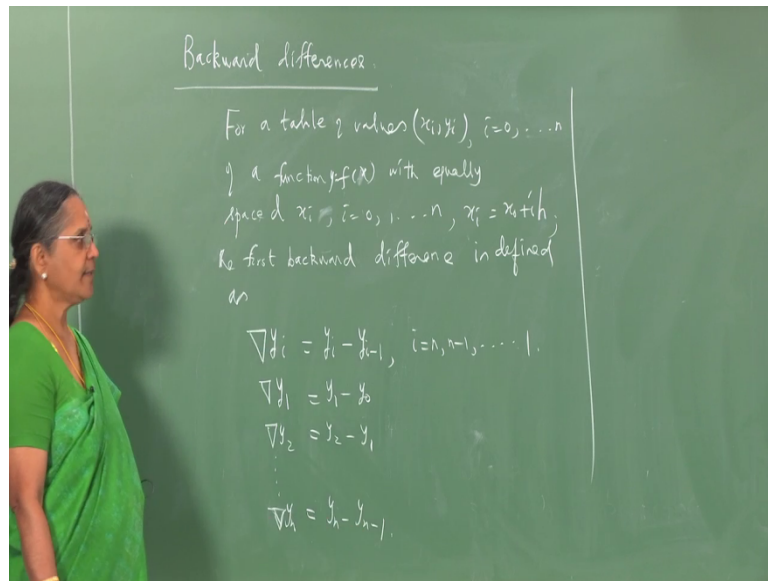 Backward differences.
For a table of values (xi, yi), i=0, ... n
of a function y=f(x) with equally
spaced xi, i=0, 1, .... n, xi = x0+ih,
the first backward difference is defined
as
∇yi = yi − yi−1, i=n, n−1, ..... 1.
∇y1 = y1 − y0
∇y2 = y2 − y1
⋮
∇yn = yn − yn−1.